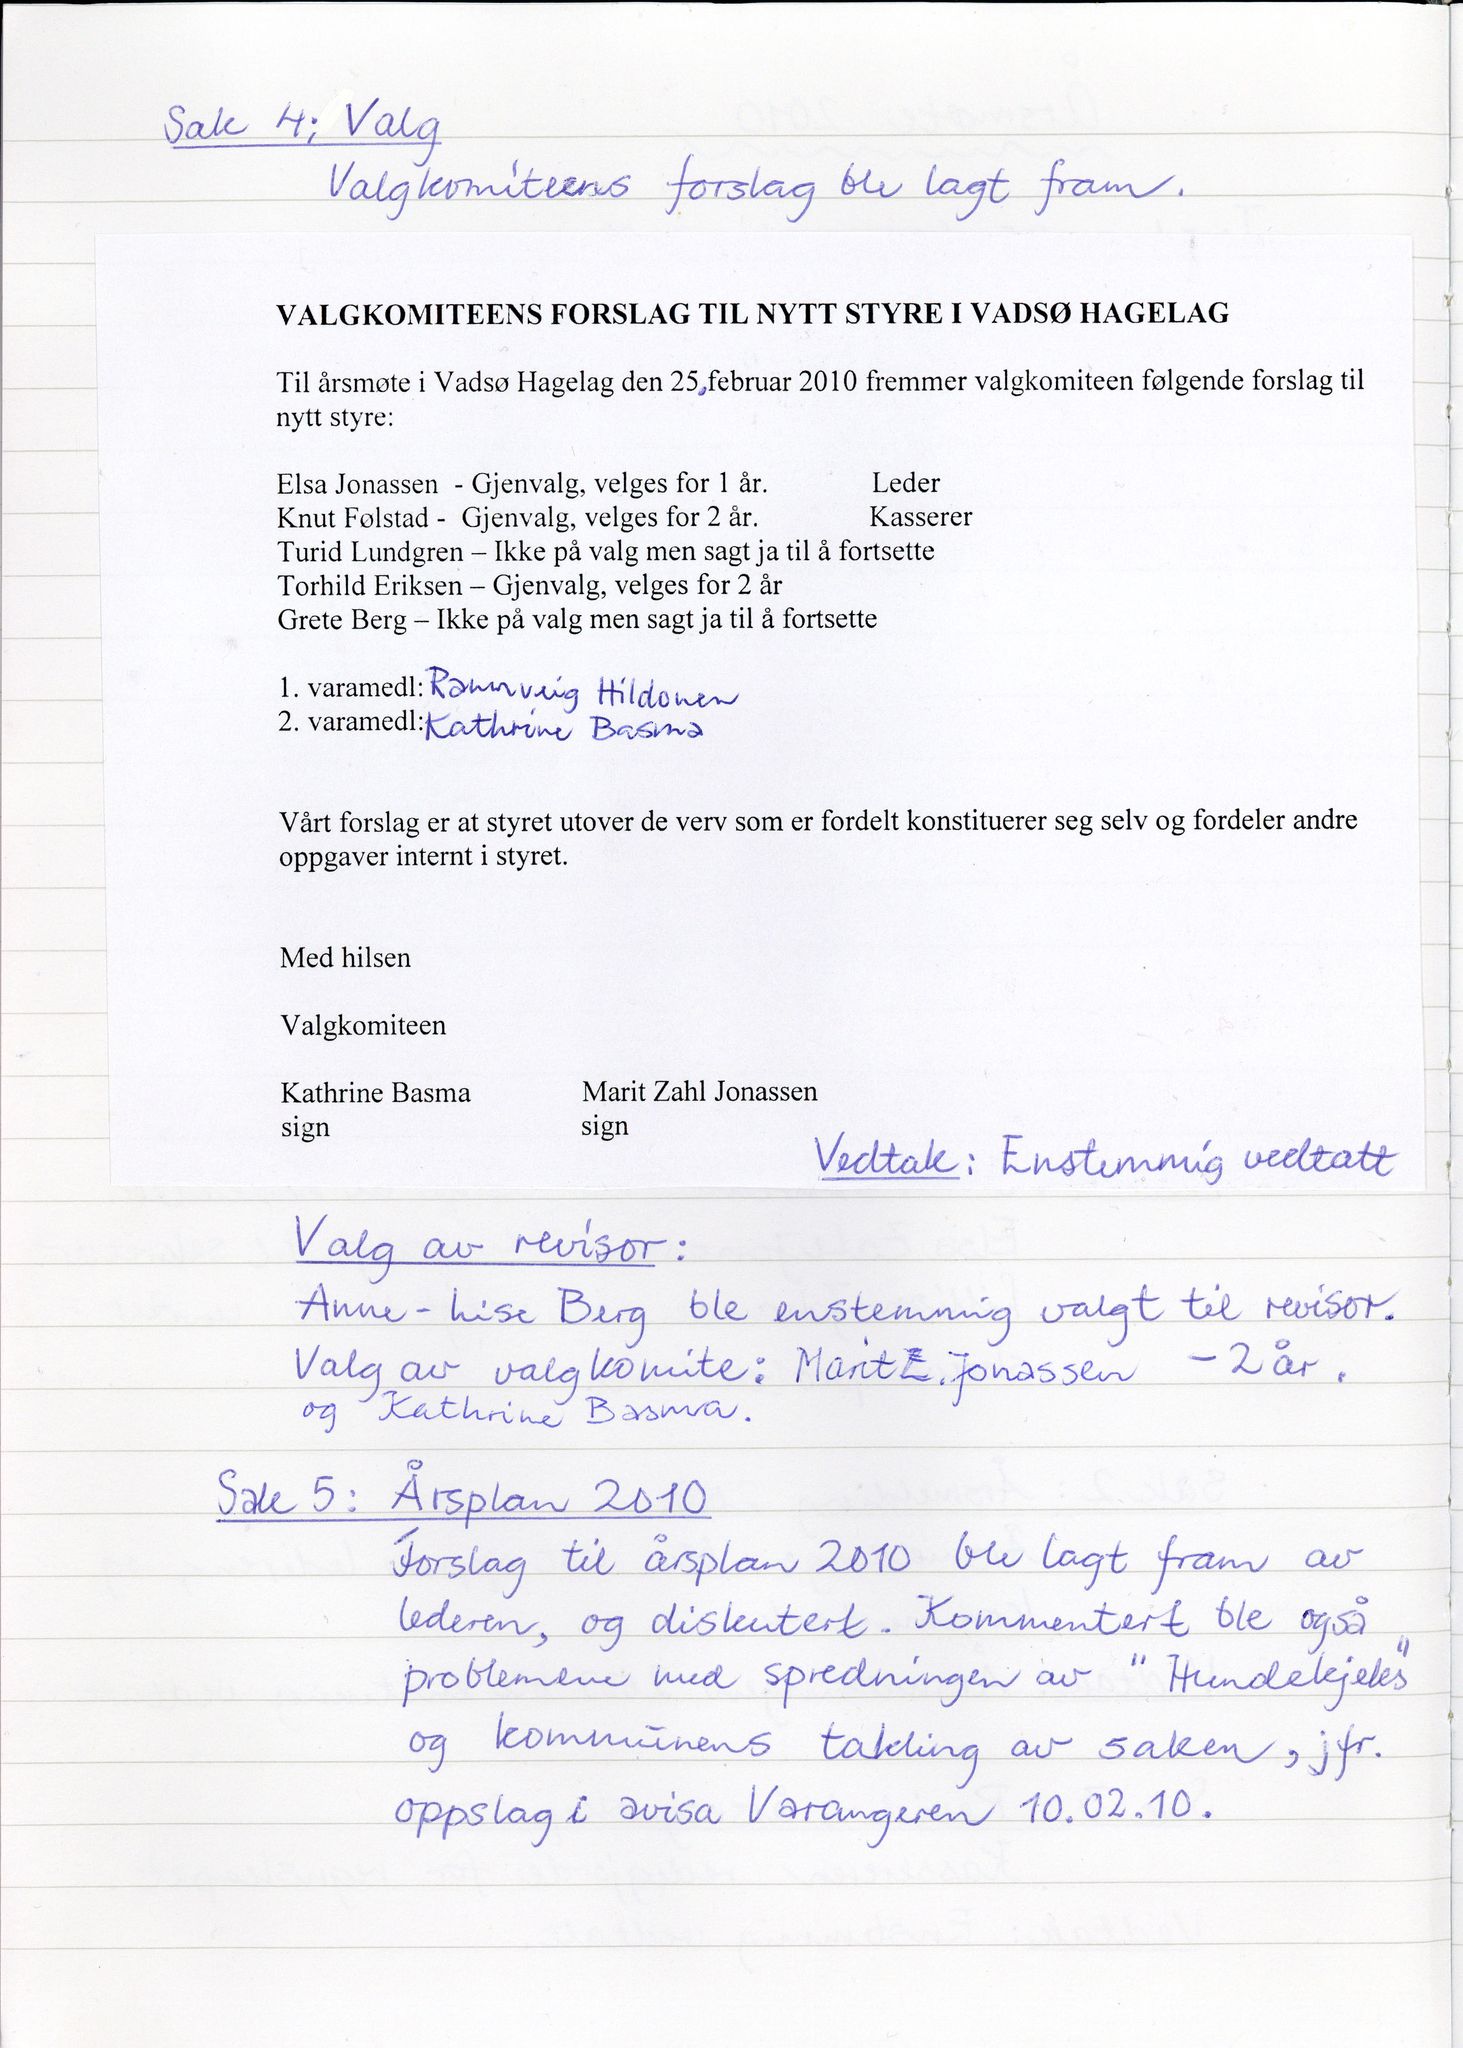 Sak 4; Valg
Valgkomiteens forslag ble lagt fram.
VALGKOMITEENS FORSLAG TIL NYTT STYRE I VADSØ HAGELAG
Til årsmøte i Vadsø Hagelag den 25.februar 2010 fremmer valgkomiteen følgende forslag til
nytt styre:
Elsa Jonassen - Gjenvalg, velges for 1 år. Leder
Knut Følstad - Gjenvalg, velges for 2 år. Kasserer
Turid Lundgren – Ikke på valg men sagt ja til å fortsette
Torhild Eriksen – Gjenvalg, velges for 2 år
Grete Berg – Ikke på valg men sagt ja til å fortsette
1. varamedl: Rannveig Hildonen
2. varamedl: Kathrine Basma
Vårt forslag er at styret utover de verv som er fordelt konstituerer seg selv og fordeler andre
oppgaver internt i styret.
Med hilsen
Valgkomiteen
Kathrine Basma Marit Zahl Jonassen
sign sign
Vedtak: Enstemmig vedtatt
Valg av revisor:
Anne-Lise Berg ble enstemmig valgt til revisor.
Valg av valgkomite: Marit Z. Jonassen - 2 år.
og Kathrine Basma.
Sak 5: Årsplan 2010
Forslag til årsplan 2010 ble lagt fram av
lederen, og diskutert. Kommentert ble også
problemene med spredningen av "Hundekjeks"
og kommunens takling av saken, jfr.
oppslag i avisa Varangeren 10.02.10.